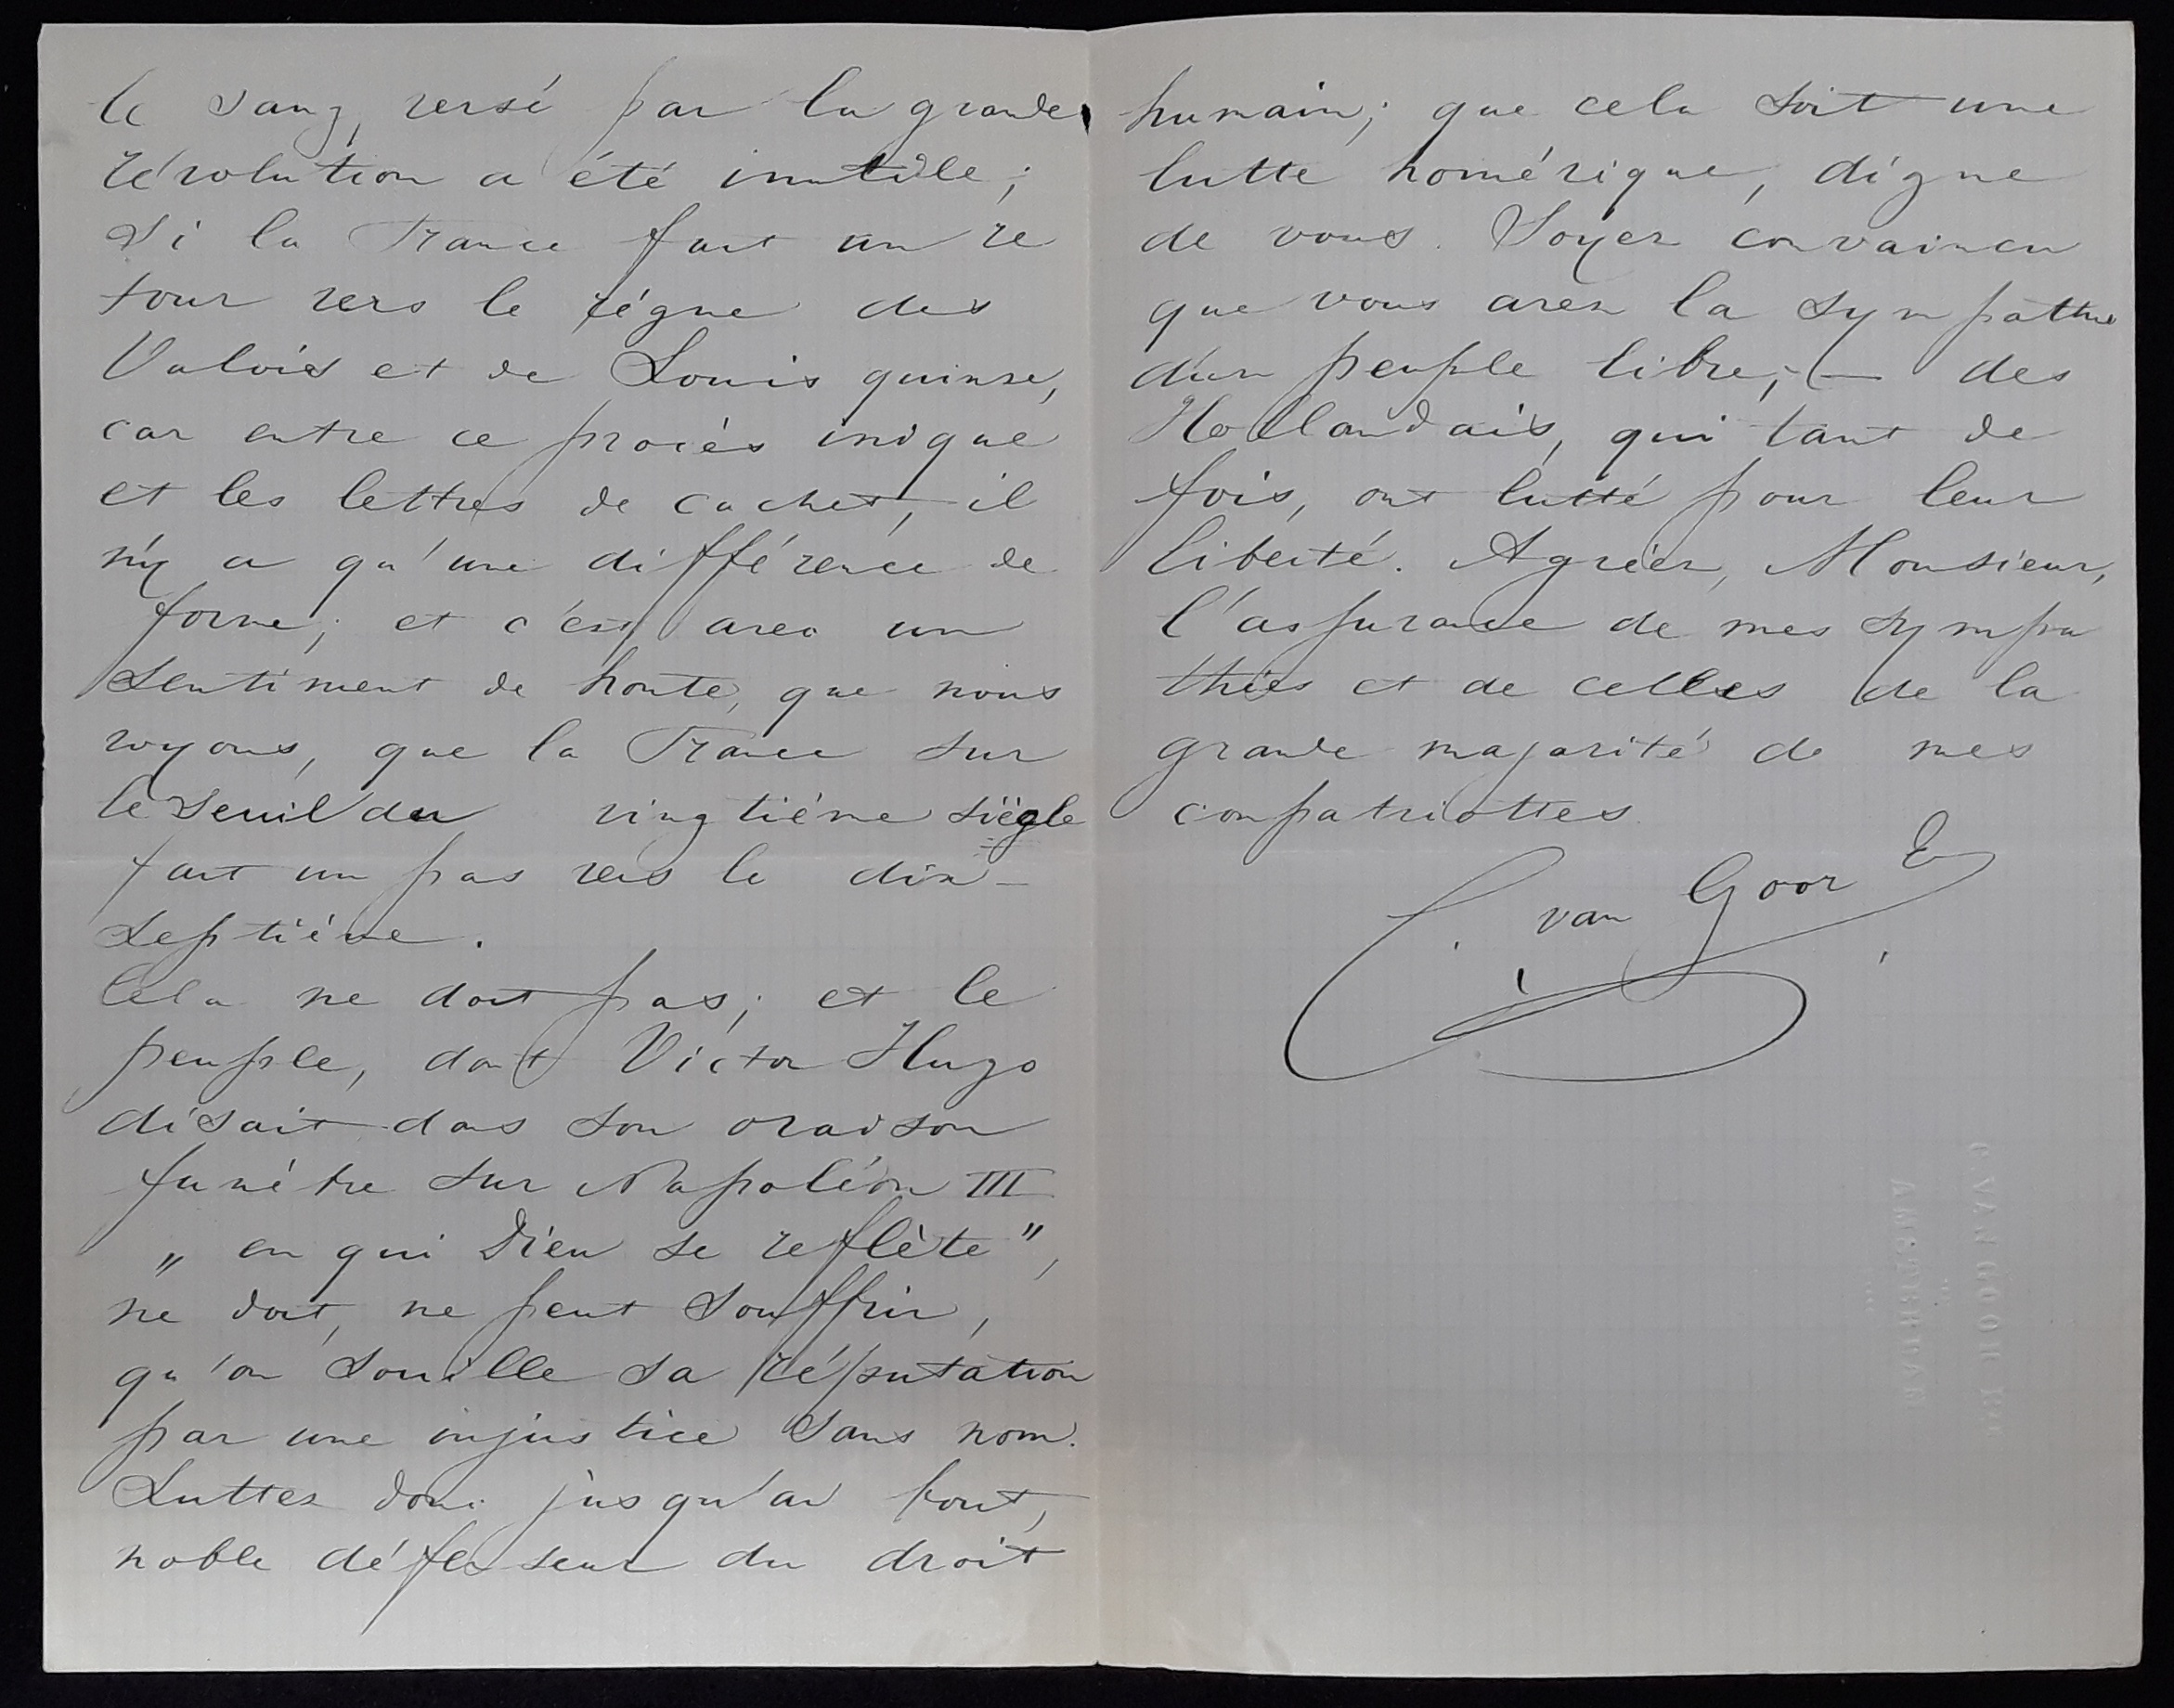 le sang, versé par la grande
révolution a été inutile;
si la France fait un re
tour vers le règne des
Valois et de Louis quinze,
car entre ce procès inique
et les lettres de cachet, il
n'y a qu'une différence de
forme; et c'est avec un
sentiment de honte, que nous
voyons, que la France sur
le seuil du vingtième siëgle
fait un pas vers le dix-
septième.
Cela ne doit pas; et le
peuple, dont Victor Hugo
disait dans son oraison
funèbre sur Napoléon III
„ en qui Dieu se reflète",
ne doit, ne peut souffrir,
qu'on souille sa réputation
par une injustice sans nom.
Luttez donc jusqu'au bout,
noble défenseur du droit
humain; que cela soit une
lutte homérique, digne
de vous. Soyez convaincu
que vous avez la sympathie
d'un peuple libre; — des
Hollandais, qui tant de
fois, ont lutté pour leur
liberté. Agréez, Monsieur,
l'assurance de mes sympa
thies et de celles de la
grande majorité de mes
compatriottes.
C. van Goor
C. VAN GOOR
AMSTERDAM